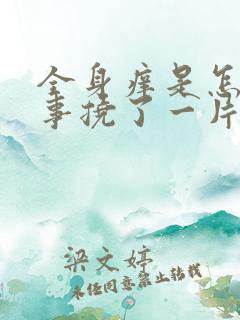 全身痒是怎
事挠了一片
梁文婷
未经同意禁止转载